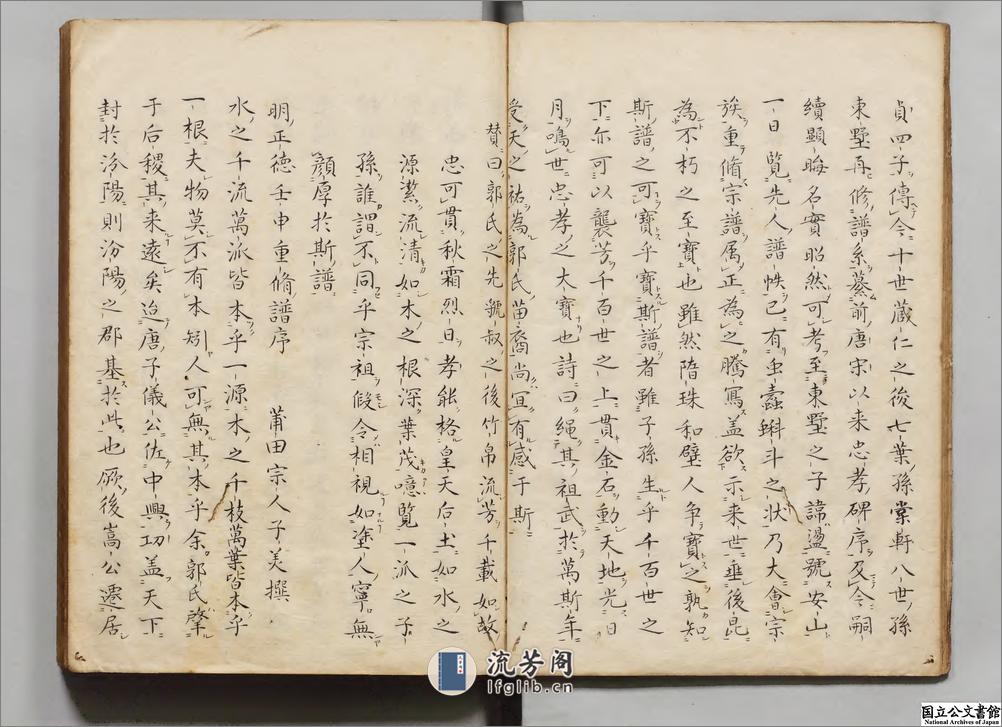 貞四子傳今十世蔵仁之後七葉孫棠軒八世孫
東墅再修譜系蔡前唐宋以来忠孝碑序及今嗣
續顯晦名實昭然可考至東墅之子諱盪號安山
一日覧先人譜帙已有虫蠹蝌斗之狀乃大會宗
族重脩宗譜属正為之騰寫盖欲示来世垂後昆
為不朽之至寶也雖然隋珠和璧人争寶之孰知
斯譜之可寶乎寶斯譜者雖子孫生乎千百世之
下亦可以襲芳千百世之上貫金石動天地光日
月鳴世忠孝之大寶也詩曰繩其祖武於萬斯年
受天之祜為郭氏苗裔尚宜有感于斯
賛曰郭氏之先虢叔之後竹帛流芳千載如故
忠可貫秋霜烈日孝能格皇天后土如水之
源潔流清如木之根深葉茂噫覧一派之子
孫誰謂不同乎宗祖假令相視如塗人寧無
顔厚於斯譜
明正徳壬申重脩譜序 莆田宗人子美撰
水之千流萬派皆本乎一源木之千枝萬葉皆本乎
一根夫物莫不有本矧人可無其本乎余郭氏肇
于后稷其来遠矣迨唐子儀公佐中興功盖天下
封於汾陽則汾陽之郡基於此也厥後嵩公遷居
流芳阁
lfglib.cn
国立公文書館
National Archives of Japan